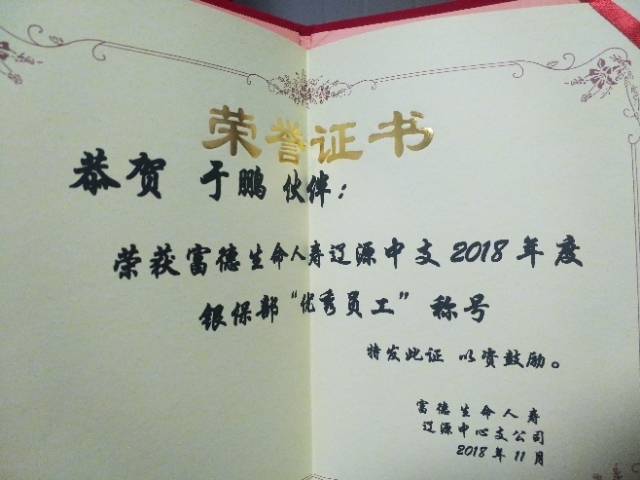 荣誉证书
恭贺 于鹏 伙伴：
荣获富德生命人寿辽源中支2018年度
银保部“优秀员工”称号
特发此证 以资鼓励。
富德生命人寿
辽源中心支公司
2018年11月